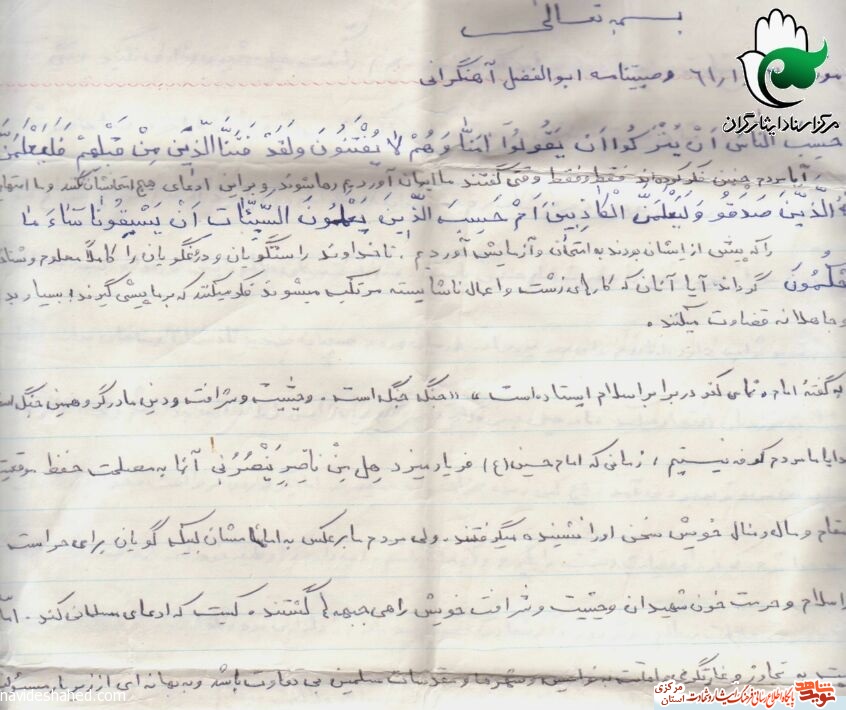 بسمه تعالی
مرکز اسناد ایثارگران
۶۱ وصیتنامه ابوالفضل آهنگرانی
حسِبَ النّاسُ اَنْ یُتْرَکُوا اَن یَقُولُوا امَنّا وَهُمْ لا یُفْتَنُونَ وَلَقَدْ فَتَنَّا الَّذینَ مِنْ قَبْلِهِمْ فَلَیَعْلَمَنَّ
آیا مردم چنین فکر کرده‌اند فقط و فقط وقتی گفتند ما ایمان آوردیم رها شوند و براین ادعای هیچ امتحانشان نکنند و ما امتهای
الَّذینَ صَدَقُو وَلَیَعْلَمَنَّ الْکاذِبینَ اَمْ حَسِبَ الَّذینَ یَعْمَلُونَ السَّیِّئاتِ اَنْ یَسْبِقُونا سَاءَ مَا
را که پیش از ایشان بودند به امتحان و آزمایش آوردیم. تا خداوند راستگویان و دروغگویان را کاملاً معلوم و
حْکُمُونَ گرداند. آیا آنان که کارهای زشت و اعمال ناشایسته مرتکب میشوند فکر میکنند که بر ما پیشی گیرند؛ بسیار بد
و جاهلانه قضاوت میکنند.
به گفتهٔ امام، تمامی کفر در برابر اسلام ایستاده است، «جنگ جنگ است. وحیثیت و شرافت و دین ما در گرو همین جنگ
ما مردم کوفه نیستیم، زمانی که امام حسین (ع) فریاد میزد هل مِنْ ناصِرٍ یَنْصُرُنی آنها به مصلحت حفظ موقعیت
مقام و مال و منال خویش سخن او را نشنیده میگرفتند. ولی مردم ما برعکس به امامشان لبیک گویان برای حراست
از اسلام و حرمت خون شهیدان وحیثیت و شرافت خویش راهی جبهه ها گشتند. کیست که ادعای مسلمانی کند. امّا
به تجاوز و غارتگری و شهرها و مقدسات مسلمین بی تفاوت باشد و به بهانه ای از زیر بار
navideshahed.com
نوید شاهد
پایگاه اطلاع رسانی فرهنگ ایثار و شهادت
استان مرکزی